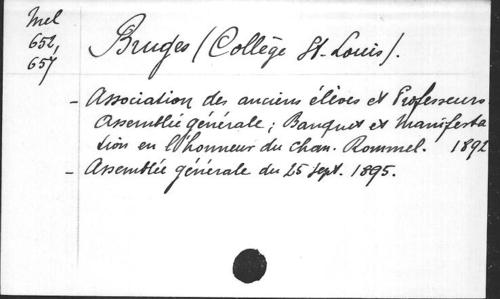 Mel
652,
657
Bruges (Collège St. Louis).
- Association des anciens élèves et Professeurs
Assemblée générale; Banquet et Manifesta
tion en l'honneur du Chan. Rommel. 1892
- Assemblée générale du 25 Sept. 1895.